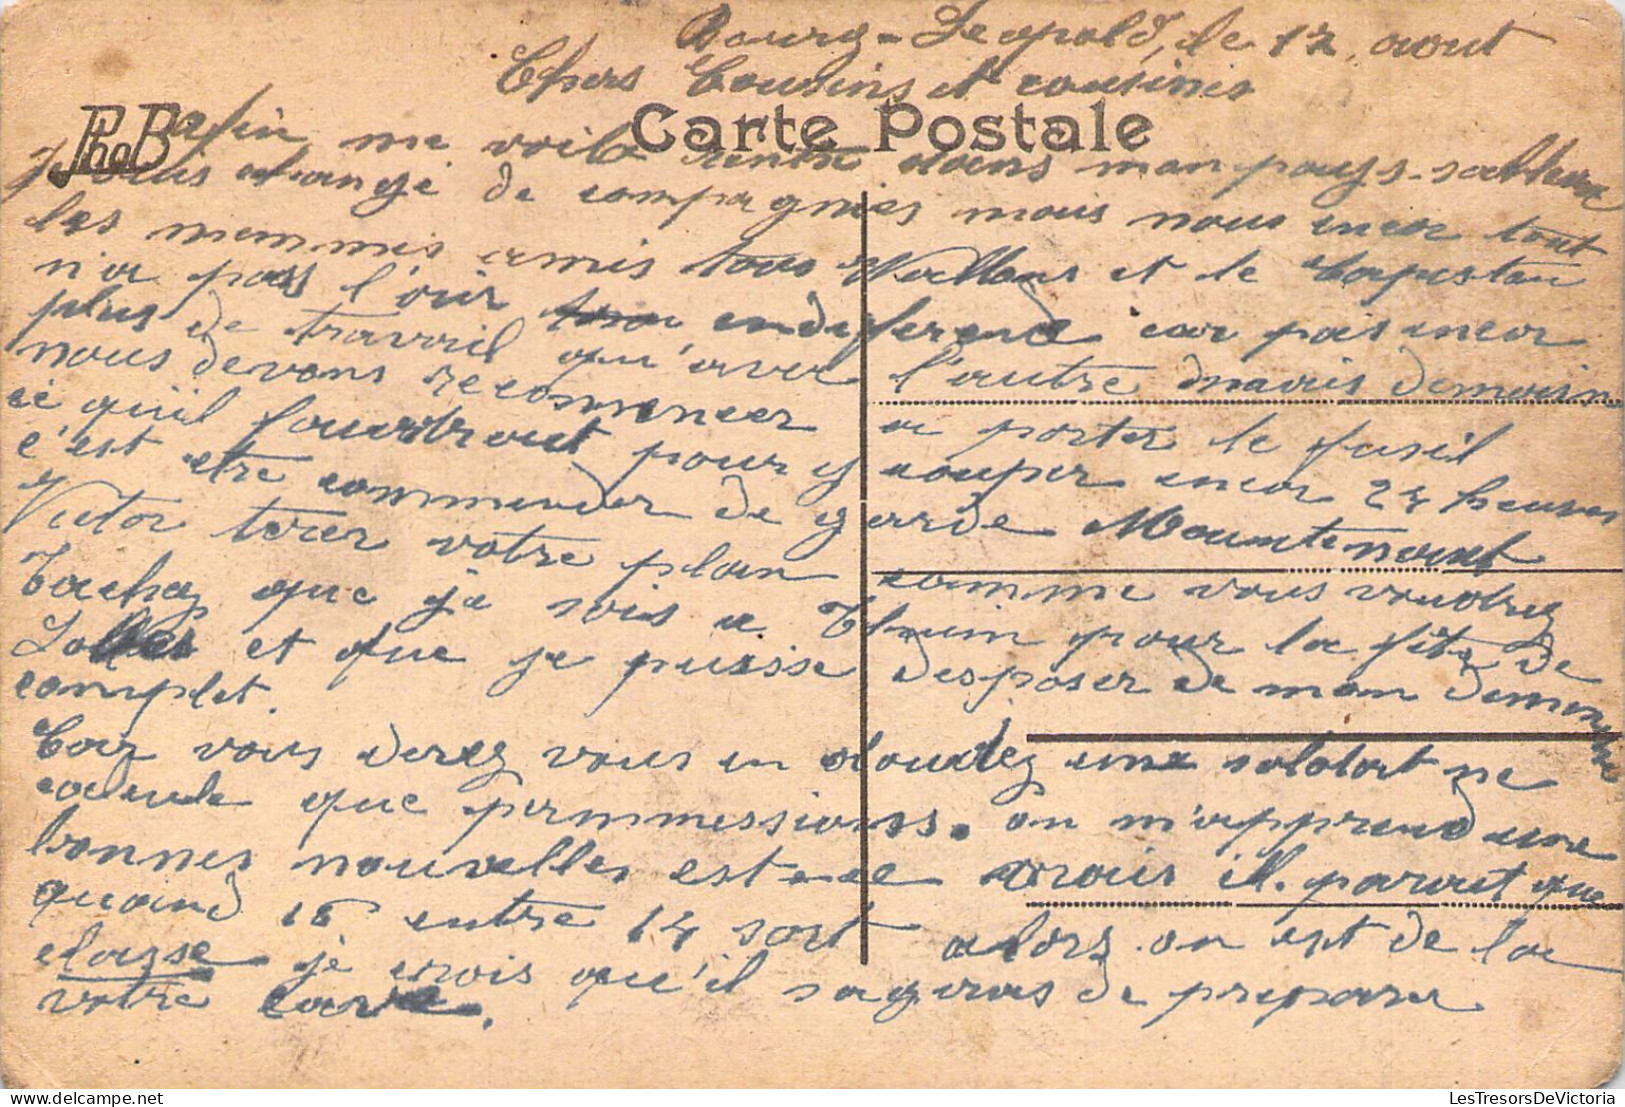 Bourg-Leopold, le 12 aout
Chers Cousins et cousines
Carte Postale
PhoB
afin me voila rentre dans mon pays. sallenc
Je suis changé de compagnies mais nous encor tout
les memmes amis tous Wallons et le Capistau
n'a pas l'oir endiferend car pas encor
plus de travail qu'aver l'autre mais demain
nous devons recommencer a porter le fusil
ce quil faudrait pour y couper encor 24 heures
c'est etre commender de garde Maintenant
Victor tirer votre plan comme vous voudrez
Tachez que je sois a Thuin pour la fête de
et que je puisse desposer de mon
complet.
Car vous derez vous en doutez une soldat ne
calcule que permmessions. on m'apprend une
bonnes nouvelles est-ce vrais il. parait que
quand 15 entre 14 sort alors on est de la
classe je crois qu'il sageras de preparer
votre cave.
LesTresorsDeVictoria